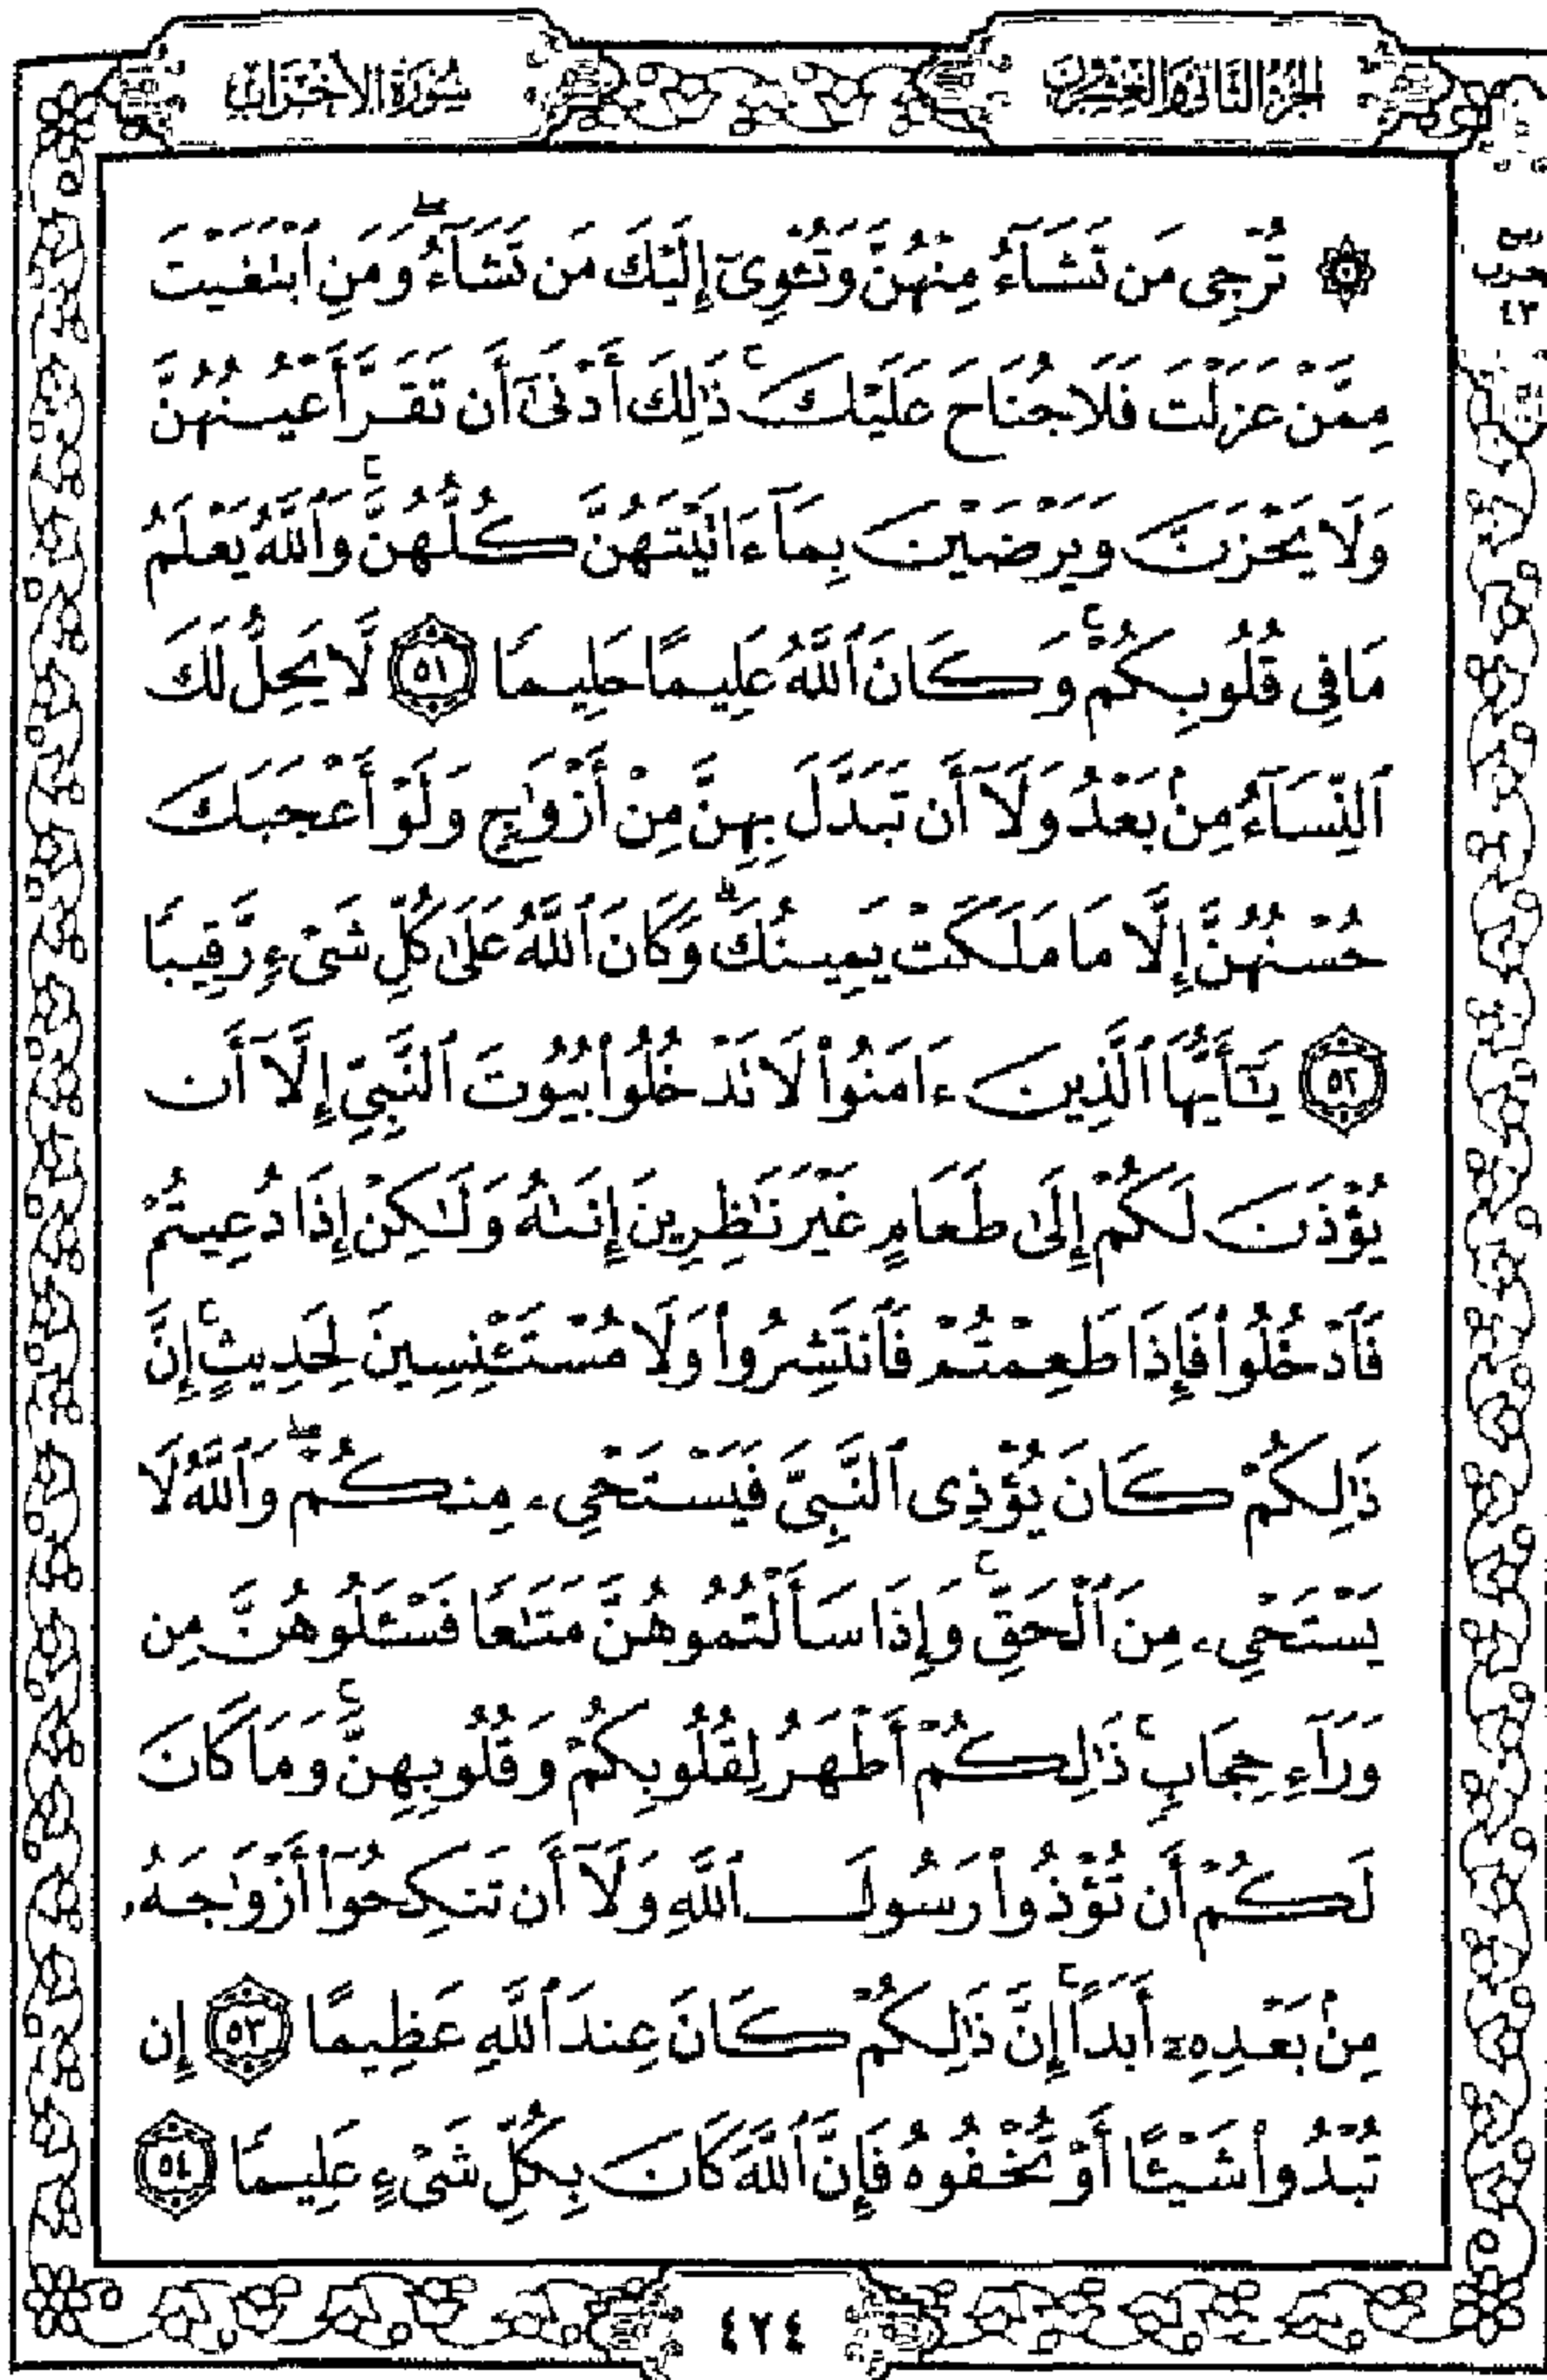 الجزء الثاني والعشرون
سورة الأحزاب
ربع
حزب
٤٣
۞ تُرْجِى مَن تَشَآءُ مِنْهُنَّ وَتُـْٔوِىٓ إِلَيْكَ مَن تَشَآءُ ۖ وَمَنِ ٱبْتَغَيْتَ
مِمَّنْ عَزَلْتَ فَلَا جُنَاحَ عَلَيْكَ ۚ ذَٰلِكَ أَدْنَىٰٓ أَن تَقَرَّ أَعْيُنُهُنَّ
وَلَا يَحْزَنَّ وَيَرْضَيْنَ بِمَآ ءَاتَيْتَهُنَّ كُلُّهُنَّ ۚ وَٱللَّهُ يَعْلَمُ
مَا فِى قُلُوبِكُمْ ۚ وَكَانَ ٱللَّهُ عَلِيمًا حَلِيمًا ٥١ لَّا يَحِلُّ لَكَ
ٱلنِّسَآءُ مِنۢ بَعْدُ وَلَآ أَن تَبَدَّلَ بِهِنَّ مِنْ أَزْوَٰجٍ وَلَوْ أَعْجَبَكَ
حُسْنُهُنَّ إِلَّا مَا مَلَكَتْ يَمِينُكَ ۗ وَكَانَ ٱللَّهُ عَلَىٰ كُلِّ شَىْءٍ رَّقِيبًا
٥٢ يَـٰٓأَيُّهَا ٱلَّذِينَ ءَامَنُوا۟ لَا تَدْخُلُوا۟ بُيُوتَ ٱلنَّبِىِّ إِلَّآ أَن
يُؤْذَنَ لَكُمْ إِلَىٰ طَعَامٍ غَيْرَ نَـٰظِرِينَ إِنَىٰهُ وَلَـٰكِنْ إِذَا دُعِيتُمْ
فَٱدْخُلُوا۟ فَإِذَا طَعِمْتُمْ فَٱنتَشِرُوا۟ وَلَا مُسْتَـْٔنِسِينَ لِحَدِيثٍ ۚ إِنَّ
ذَٰلِكُمْ كَانَ يُؤْذِى ٱلنَّبِىَّ فَيَسْتَحْىِۦ مِنكُمْ ۖ وَٱللَّهُ لَا
يَسْتَحْىِۦ مِنَ ٱلْحَقِّ ۚ وَإِذَا سَأَلْتُمُوهُنَّ مَتَـٰعًا فَسْـَٔلُوهُنَّ مِن
وَرَآءِ حِجَابٍ ۚ ذَٰلِكُمْ أَطْهَرُ لِقُلُوبِكُمْ وَقُلُوبِهِنَّ ۚ وَمَا كَانَ
لَكُمْ أَن تُؤْذُوا۟ رَسُولَ ٱللَّهِ وَلَآ أَن تَنكِحُوٓا۟ أَزْوَٰجَهُۥ
مِنۢ بَعْدِهِۦٓ أَبَدًا ۚ إِنَّ ذَٰلِكُمْ كَانَ عِندَ ٱللَّهِ عَظِيمًا ٥٣ إِن
تُبْدُوا۟ شَيْـًٔا أَوْ تُخْفُوهُ فَإِنَّ ٱللَّهَ كَانَ بِكُلِّ شَىْءٍ عَلِيمًا ٥٤
٤٢٤